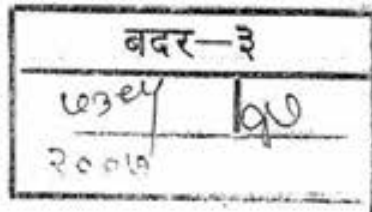 बदर—३
७३९५ १७
२००७